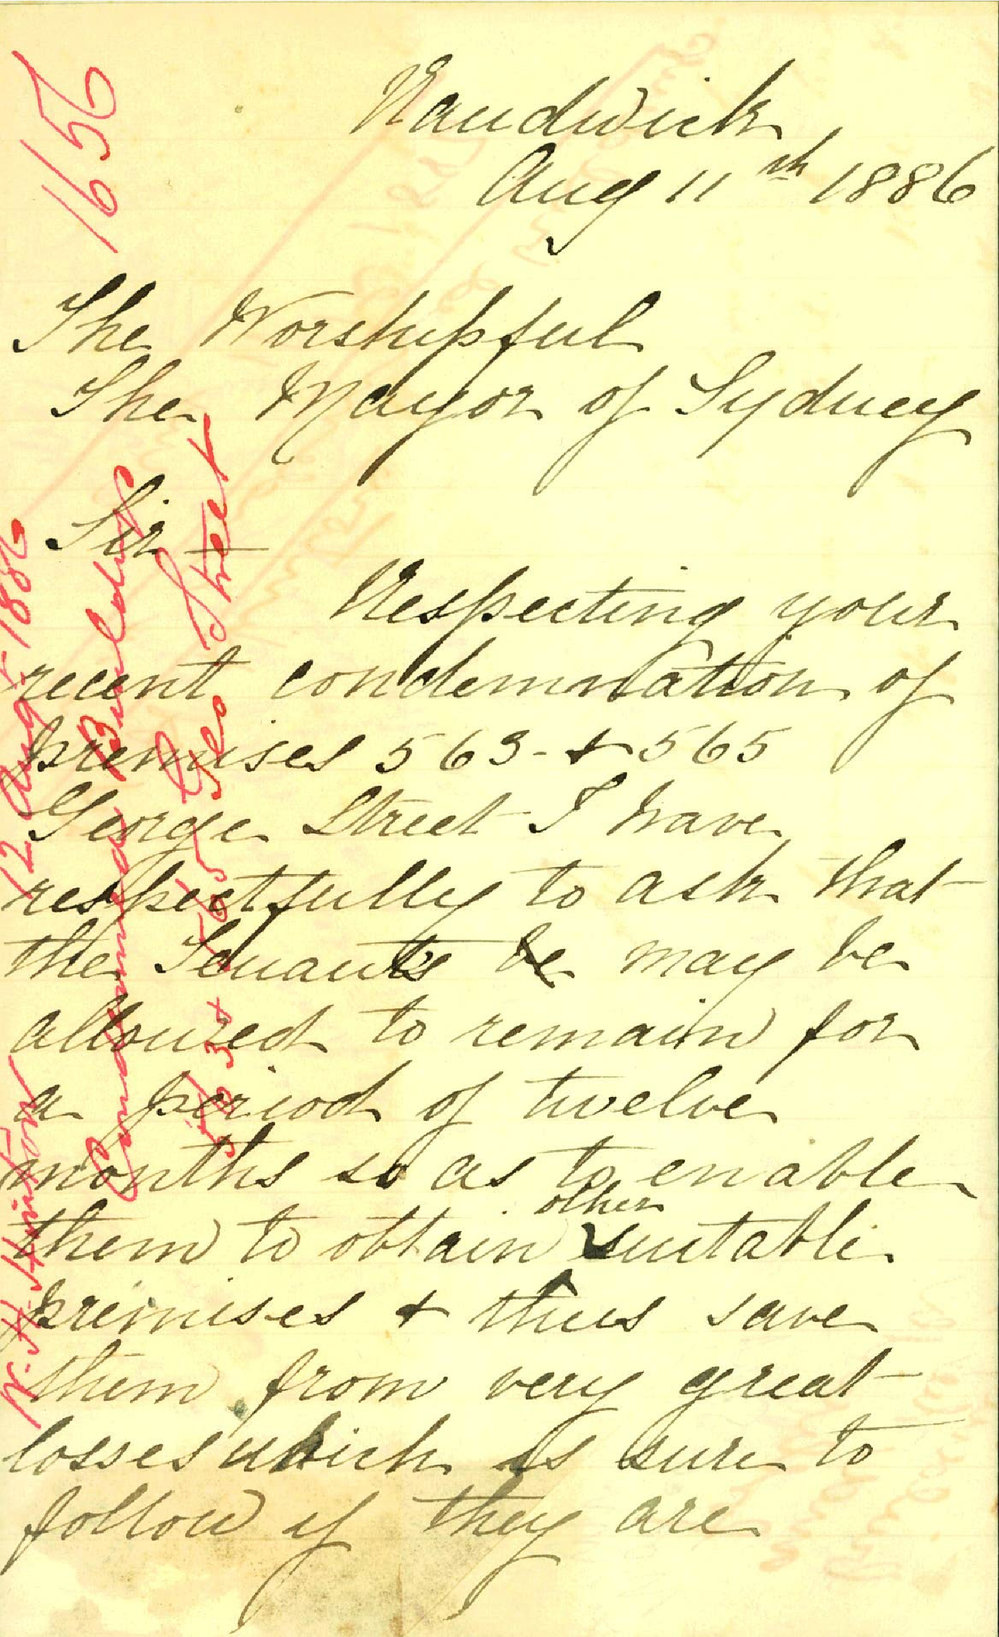 Randwick
Aug 11th 1886
The Worshipful
The Mayor of Sydney
Sir –
Respecting your
recent condemnation of
premises 563 - & 565
George Street I have
respectfully to ask that
the Tenants be may be
allowed to remain for
a period of twelve
months so as to enable
them to obtain other suitable
premises & thus save
them from very great
losses which is sure to
follow if they are
1656
12 Aug - 1886
W. H. Hinton
Condemned Buildings
563 & 565 Geo Street